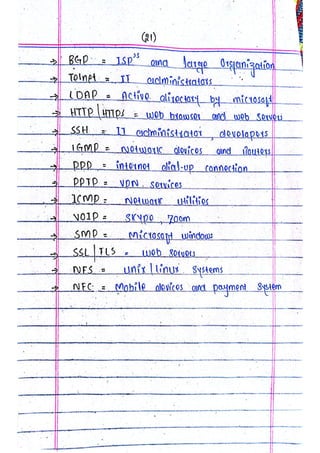 (21)
→ BGP = ISP's and large Organization
→ Telnet = IT administrators
→ LDAP = Active directory by microsoft
→ HTTP | HTTPS = web browser and web servers
→ SSH = IT administrator, developers
→ IGMP = Network devices and routers
→ PPP = internet dial-up connection
→ PPTP = VPN services
→ ICMP = Network utilities
→ VOIP = Skype, Zoom
→ SMP = Microsoft windows
→ SSL | TLS = web servers
→ NFS = unix | linux systems
→ NFC = Mobile devices and payment System